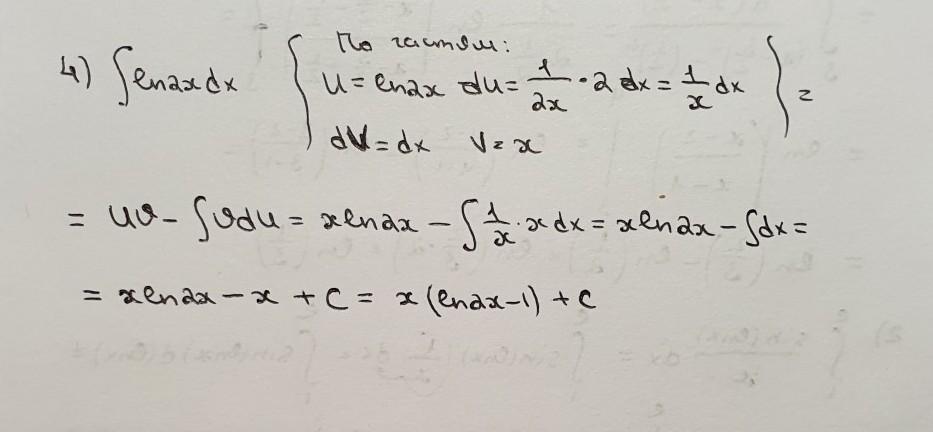 По частям:
4) ∫ln2xdx { U = ln2x du = 1/2x · 2 dx = 1/x dx } =
dV = dx V = x
= UV - ∫Vdu = xln2x - ∫ 1/x · x dx = xln2x - ∫dx =
= xln2x - x + C = x (ln2x-1) + C